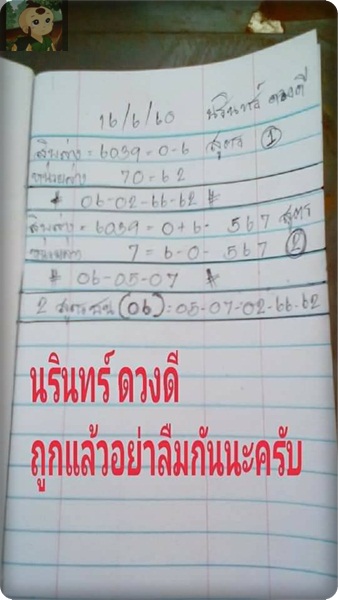 16/6/60 นรินทร์ ดวงดี
สิบล่าง = 6039 = 0-6 สูตร ①
หน่วยล่าง 70 = 62
* 06-02-66-62 *
สิบล่าง = 6039 = 0+6 - 567 สูตร
หน่วยล่าง 7 = 6-0 - 567 ②
* 06-05-07 *
2 สูตรชน (06) = 05-07-02-66-62
นรินทร์ ดวงดี
ถูกแล้วอย่าลืมกันนะครับ